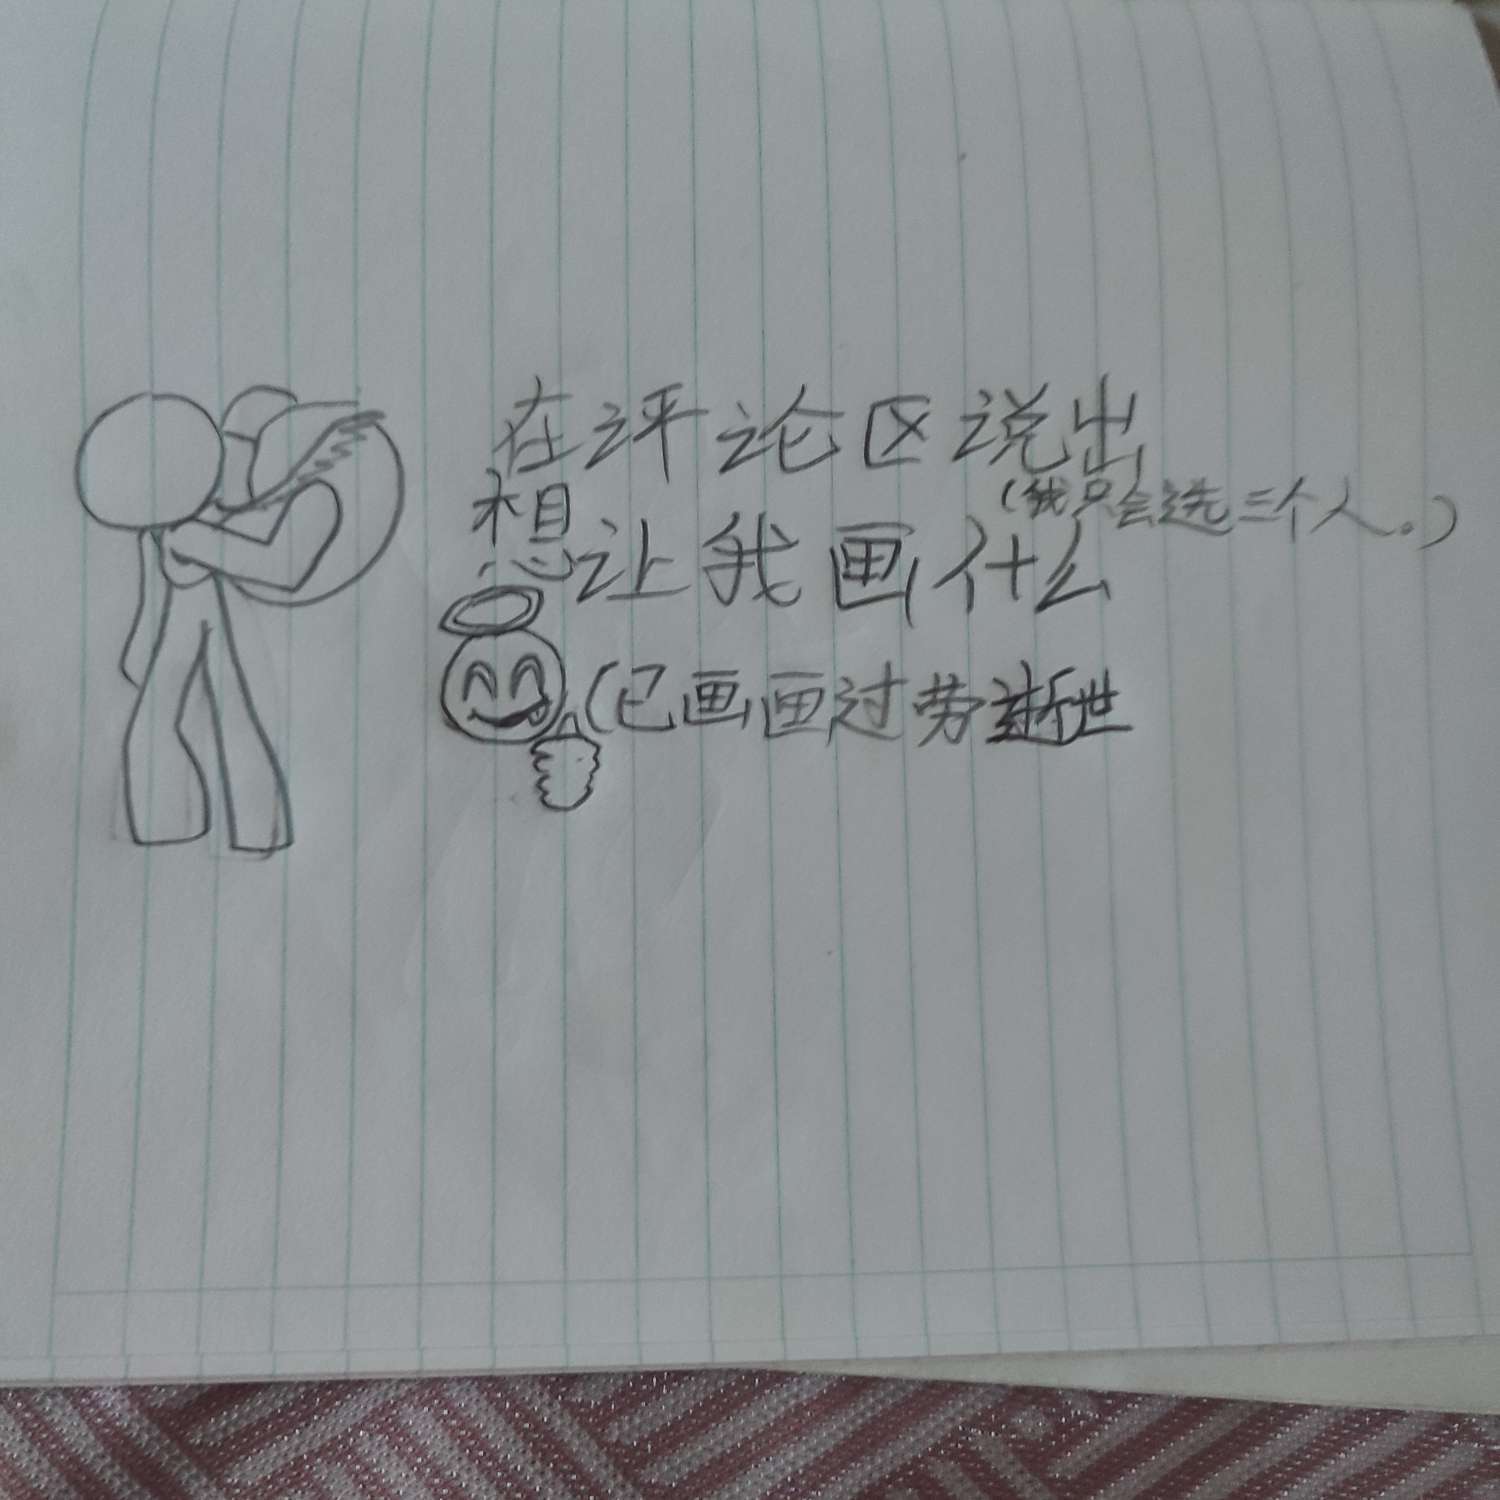 在评论区说出
(我只会选三个人。)
想让我画什么
(已画画过劳逝世